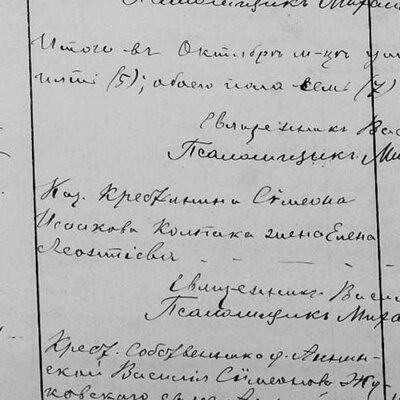 Псаломщикъ Миха
Итого въ Октябрѣ м-цѣ ум
пяти (5); обоего пола семь (7)
Священникъ Вас
Псаломщикъ Ми
Каз. Крестьянина Сѵмеона
Исаакова Колпака жена Елена
Леонтіева
Священникъ Васил
Псаломщикъ Миха
Крест. Собственника д. Аннин-
ской Василія Сѵмеонова Жу-
ковскаго